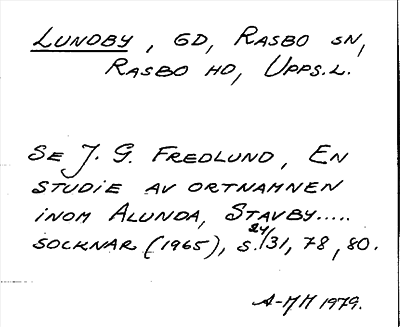 LUNDBY, GD, RASBO SN,
RASBO HD, UPPS.L.
SE J. G. FREDLUND, EN
STUDIE AV ORTNAMNEN
INOM ALUNDA, STAVBY.....
SOCKNAR (1965), S. 24/31, 78, 80.
A-MH 1979.